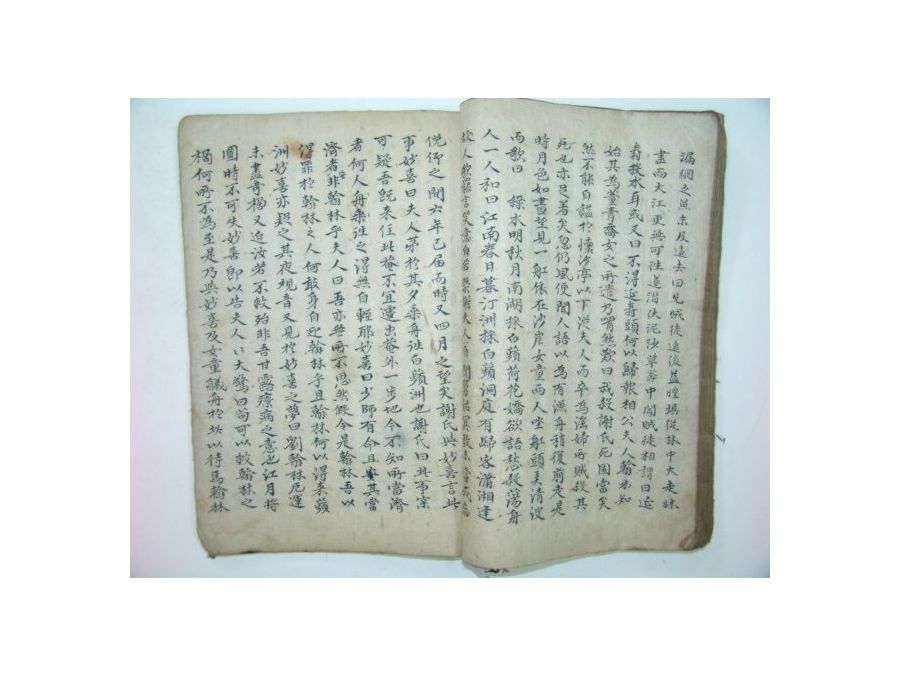 漏網之魚未及遠去回見賊徒追後益惶惕從林中大走林
盡而大江更無可往遂潛伏泥沙草莽中聞賊徒相謂曰近
翦投水身或又曰不得延壽頭何以歸報相公夫人翰林知
始其為董青喬女之所遣乃喟然歎曰我殺謝氏死固當矣
然不能自縊於懷沙亭以下從夫人而卒為淫婦所賊殺其
死也亦足羞矣忽仍風便聞人語以為有漁舟稍復前走是
時月色如晝望見一船依在沙岸女童兩人坐船頭美清波
而歌曰 綠水明秋月南湖採白蘋荷花嬌欲語愁殺蕩舟
人一人和曰江南春日暮汀洲採白蘋洞庭有歸客瀟湘逢
故人
俛仰之間六年已屆而時又四月之望矣謝氏與妙喜言此
事妙喜曰夫人第於其夕乘舟往白蘋洲也謝氏曰此事案
可疑吾既來住此菴不宜遣出菴外一步地今不知所當濟
者何人舟乘往之得無自輕耶妙喜曰少師有命且其當
濟者非翰林乎夫人曰吾亦無所不思然假令是翰林吾以
得罪於翰林之人何敢身自迎翰林乎且翰林何以得來蘋
洲妙喜亦疑之其夜觀音又見於妙喜之夢曰劉翰林厄運
未盡奇禍又迫汝若不救殆非吾甘露療病之意也江月將
圓時不可失妙喜即以告夫人人大驚曰苟可以救翰林之
禍何所不為至是乃與妙喜及女童艤舟於此以待焉翰林